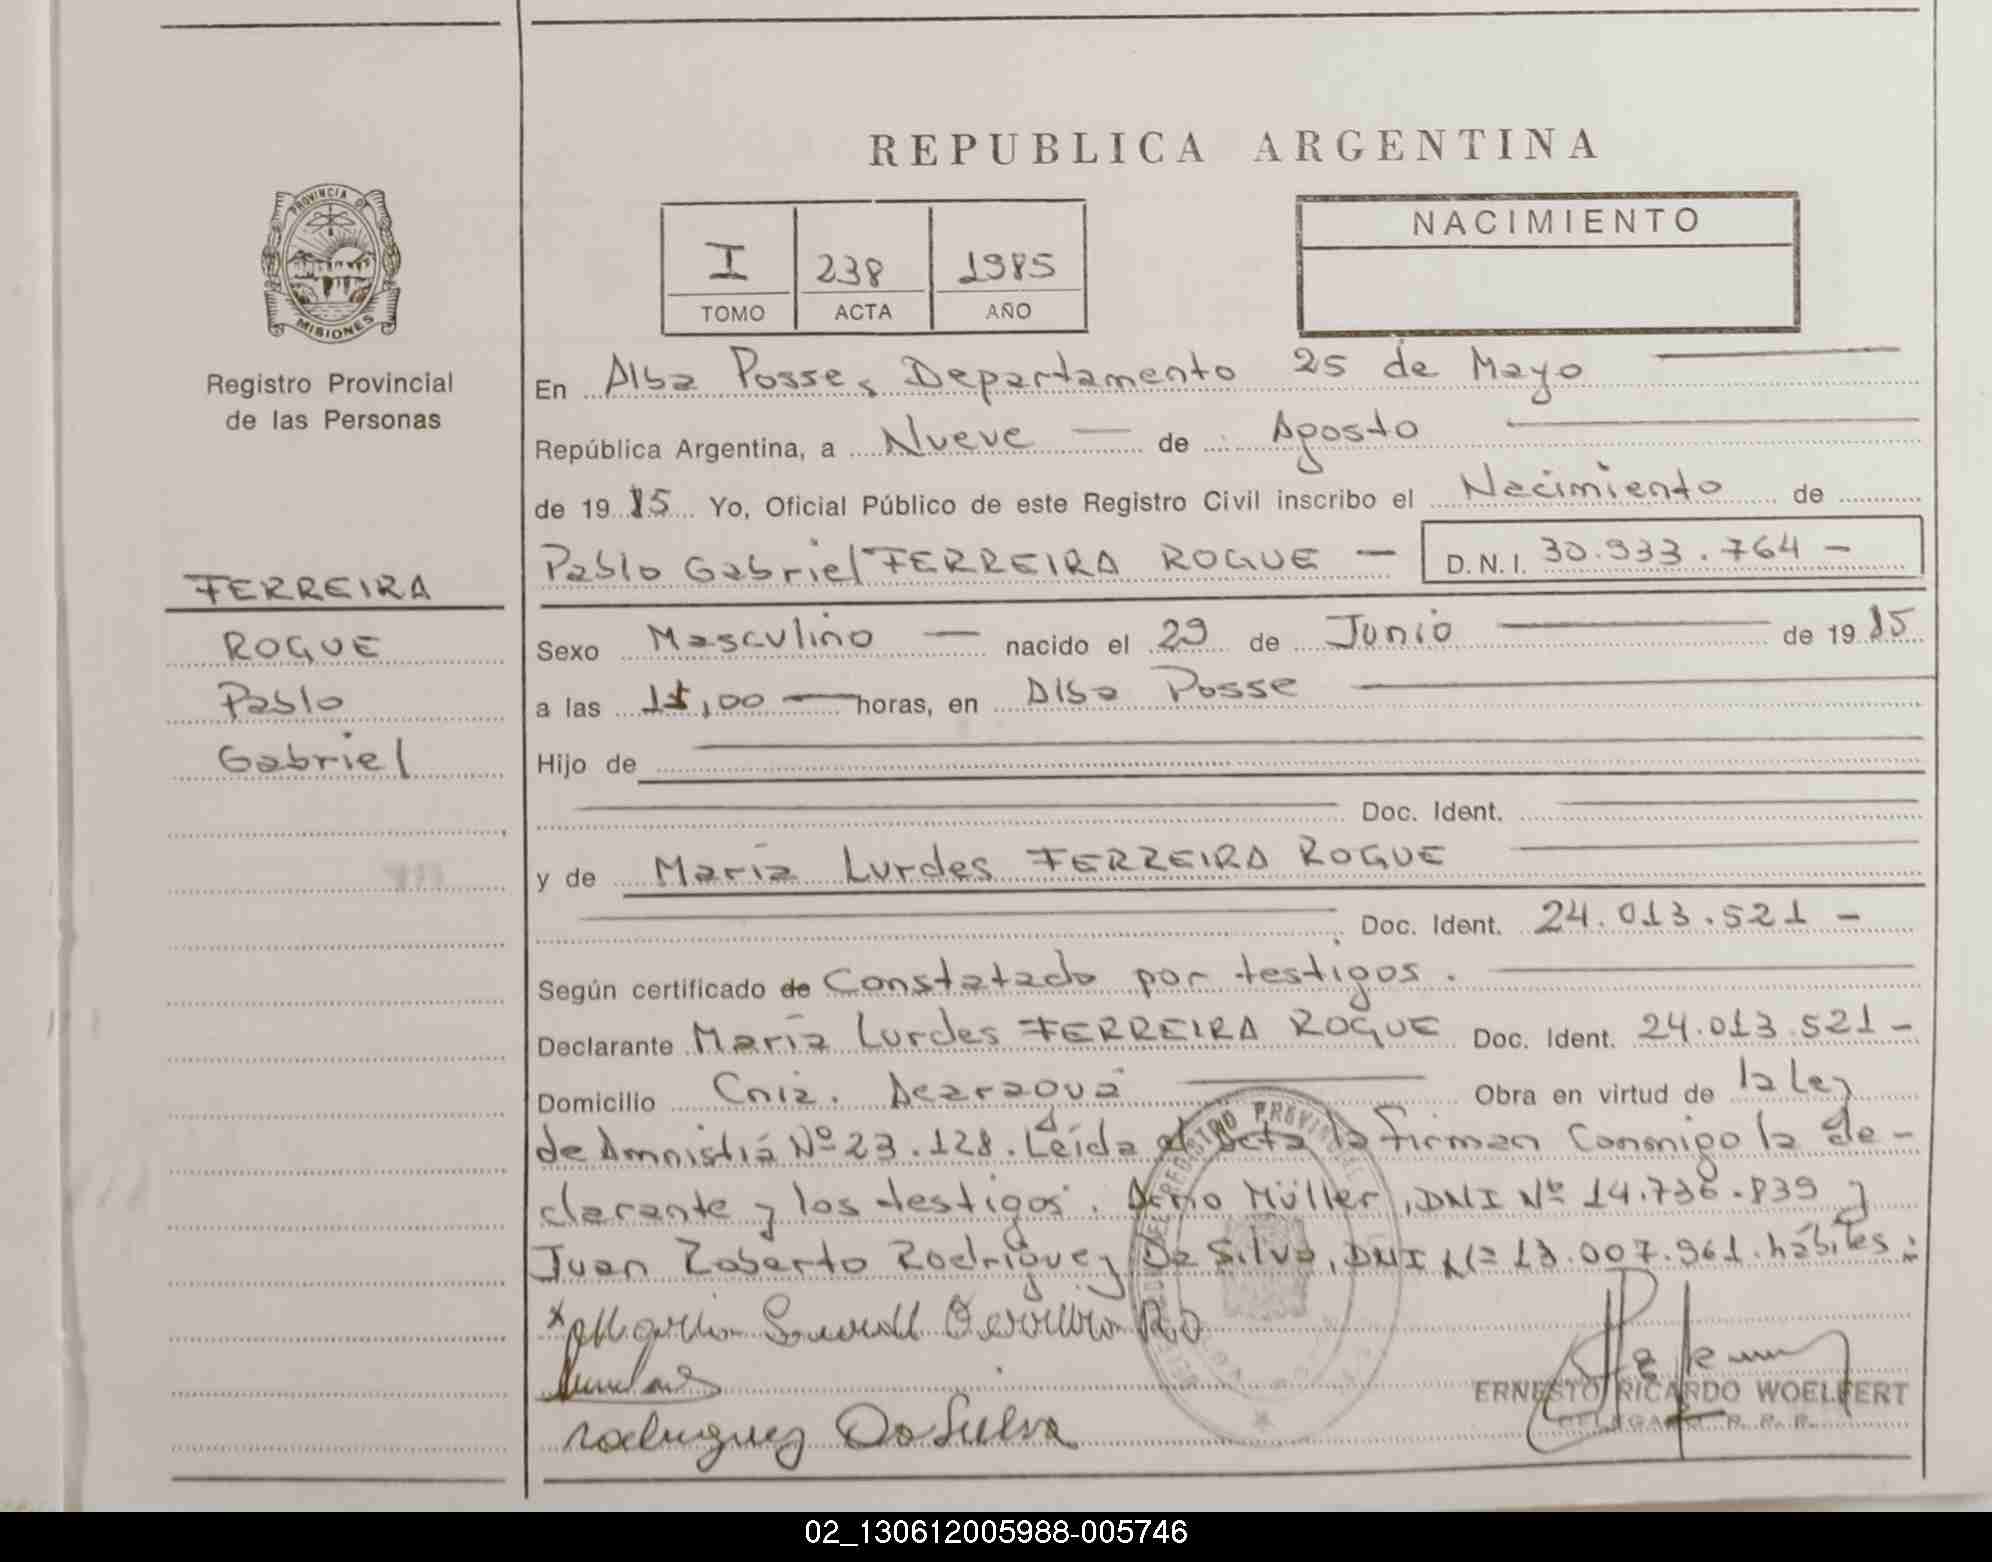 REPUBLICA ARGENTINA
PROVINCIA DE
MISIONES
Registro Provincial
de las Personas
I 238 1985
TOMO ACTA AÑO
NACIMIENTO
En Alba Posse, Departamento 25 de Mayo
República Argentina, a Nueve de Agosto
de 19 85 Yo, Oficial Público de este Registro Civil inscribo el Nacimiento de
Pablo Gabriel FERREIRA ROGUE — D.N.I. 30.933.764 —
FERREIRA
ROGUE
Pablo
Gabriel
Sexo Masculino — nacido el 29 de Junio de 19 85
a las horas, en Alba Posse
Hijo de
Doc. Ident.
y de María Lurdes FERREIRA ROGUE
Doc. Ident. 24.013.521 —
Según certificado de Constatado por testigos.
Declarante María Lurdes FERREIRA ROGUE Doc. Ident. 24.013.521 —
Domicilio Cnia. Acaraguá Obra en virtud de la Ley
de Amnistiá Nº 23.128. Leída el Acta la Firman Conmigo la de-
clarante y los testigos. Arno Müller, DNI Nº 14.736.839 y
Juan Roberto Rodríguez Da Silva, DNI Nº 13.007.961. hábiles:
REGISTRO PROVINCIAL
rodriguez Da Silva
ERNESTO RICARDO WOELFERT
DELEGADO R. P. P.
02_130612005988-005746